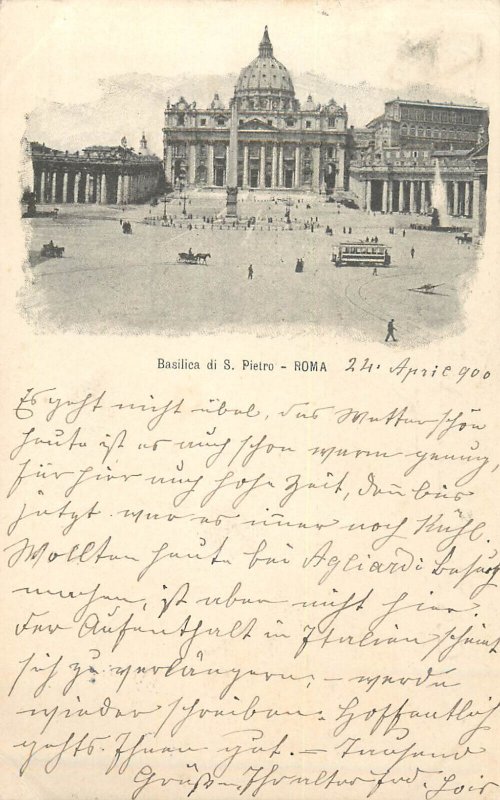 Basilica di S. Pietro - ROMA 24. April 900
Es geht nicht übel, das Wetter schön
heute ist es auch schon warm genug,
für hier auch hohe Zeit, den bis
jetzt war es imer noch Kühl.
Wollten heute bei Agliardi Besuch
machen, ist aber nicht hier.
Der Aufenthalt in Italien scheint
sich zu verlängern, - werde
wieder schreiben. Hoffentlich
gehts Ihnen gut. - Tausend
Grüße Ihr alter